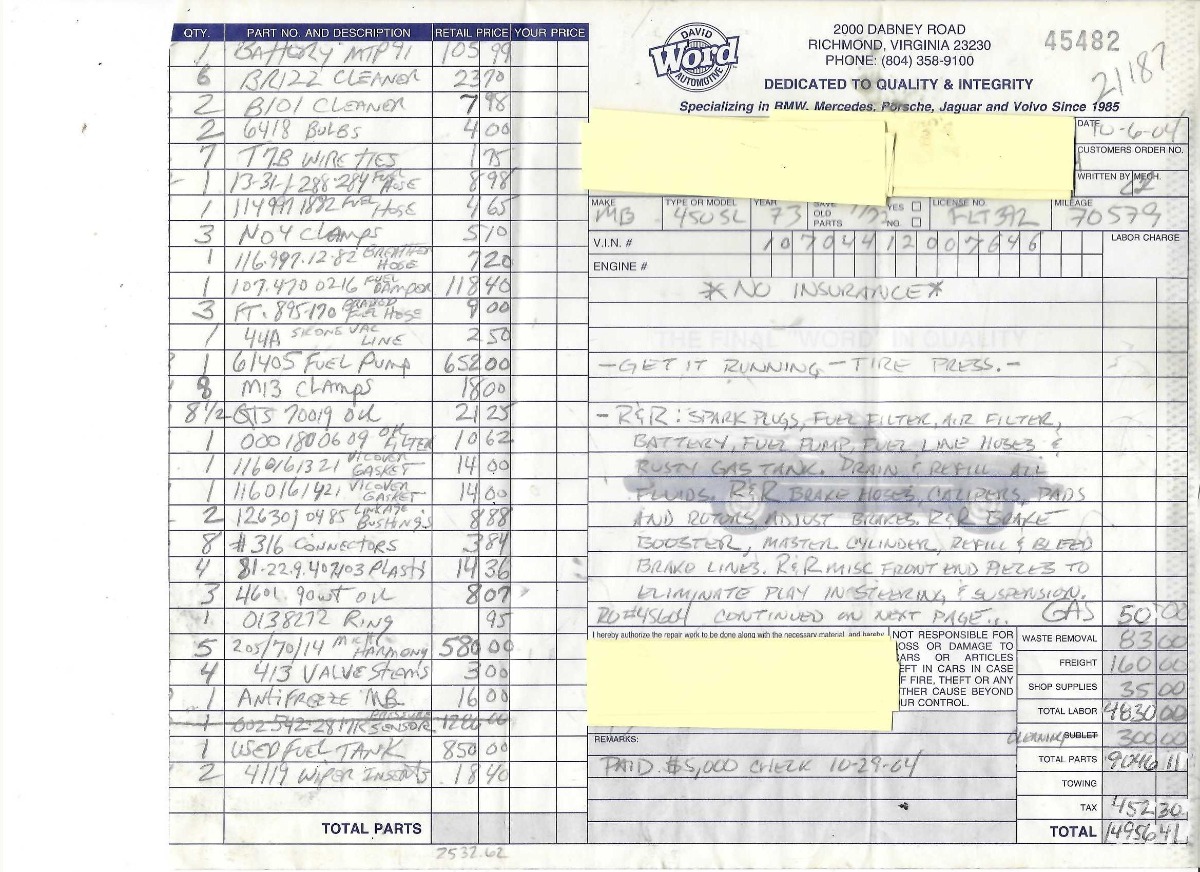 QTY. PART NO. AND DESCRIPTION RETAIL PRICE YOUR PRICE
1 BATTORY MTP91 105 99
6 BR122 CLEANER 23 70
2 B101 CLEANER 7 98
2 6418 BULBS 4 00
7 T7B WIRE TIES 1 75
1 13-31-1 288-284 FUEL HOSE 8 98
1 114 997 1882 FUEL HOSE 4 65
3 NO4 CLAMPS 5 10
1 116-997-12-82 BREATHER HOSE 7 20
1 107-470 0216 FUEL DAMPER 118 40
3 FT. 895-170 BRADED FUEL HOSE 9 00
1 44A VAC LINE 2 50
1 61405 FUEL PUMP 652 00
8 M13 CLAMPS 18 00
8 1/2 QTS 70019 OIL 21 25
1 000 180 06 09 OIL FILTER 10 62
1 1160161321 V/COVER GASKET 14 00
1 1160161421 V/COVER GASKET 14 00
2 12630 10485 LINKAGE BUSHINGS 8 88
8 #316 CONNECTORS 3 84
4 81-22-9-407103 PLASTI 14 36
3 4601 90WT OIL 8 07
1 0138272 RING 95
5 205/70/14 HARMONY 580 00
4 413 VALVE STEMS 3 00
1 ANTIFREEZE MB 16 00
1 PRESSURE SENSOR
1 USED FUEL TANK 850 00
2 4119 WIPER INSERTS 18 40
TOTAL PARTS
2532.62
DAVID
Word
AUTOMOTIVE
2000 DABNEY ROAD
RICHMOND, VIRGINIA 23230
PHONE: (804) 358-9100
DEDICATED TO QUALITY & INTEGRITY
Specializing in BMW, Mercedes, Porsche, Jaguar and Volvo Since 1985
45482
21187
DATE 10-6-04
CUSTOMERS ORDER NO.
WRITTEN BY MECH.
MAKE TYPE OR MODEL YEAR SAVE OLD PARTS YES NO LICENSE NO. MILEAGE
MB 450SL 73 70579
V.I.N. # 10704412007646 LABOR CHARGE
ENGINE #
*NO INSURANCE*
THE FINAL "WORD" IN QUALITY
-GET IT RUNNING - TIRE PRESS.-
- R&R: SPARK PLUGS, FUEL FILTER, AIR FILTER,
BATTERY, FUEL PUMP, FUEL LINE HOSES &
RUSTY GAS TANK. DRAIN & REFILL ALL
FLUIDS. R&R BRAKE HOSES, CALIPERS, PADS
AND ROTORS, ADJUST BRAKES. R&R BRAKE
BOOSTER, MASTER CYLINDER, REFILL & BLEED
BRAKE LINES. R&R MISC FRONT END PIECES TO
ELIMINATE PLAY IN STEERING & SUSPENSION.
RO#45604 CONTINUED ON NEXT PAGE... GAS 50 00
I hereby authorize the repair work to be done along with the necessary material, and hereby
NOT RESPONSIBLE FOR
LOSS OR DAMAGE TO
CARS OR ARTICLES
LEFT IN CARS IN CASE
OF FIRE, THEFT OR ANY
OTHER CAUSE BEYOND
OUR CONTROL.
WASTE REMOVAL 83 00
FREIGHT 160 00
SHOP SUPPLIES 35 00
TOTAL LABOR 4830 00
CLEANING SUBLET 300 00
TOTAL PARTS 9046 11
TOWING
TAX 452 30
TOTAL 14956 41
REMARKS:
PAID. $5,000 CHECK 10-29-04